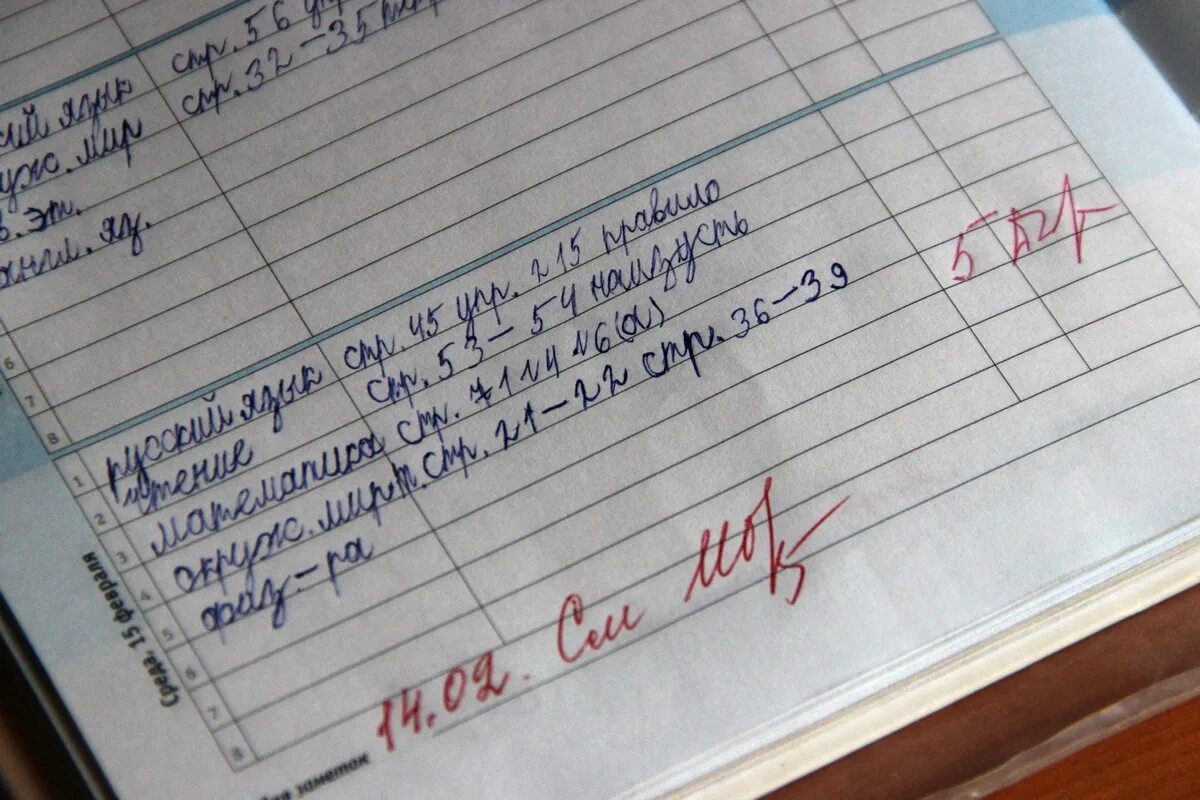 стр. 56 упр
ий язык стр. 32-35
уж. мир
эт.
англ. яз.
6
7
8
1 русский язык стр. 45 упр. 215 правило
2 чтение стр. 53-54 наизусть
3 математика стр. 71 №4 №6(а)
4 окруж. мир р.т. стр. 21-22 стр. 36-39 5
5 физ-ра
6
7
8
Среда, 15 февраля
14.02. См
заметок